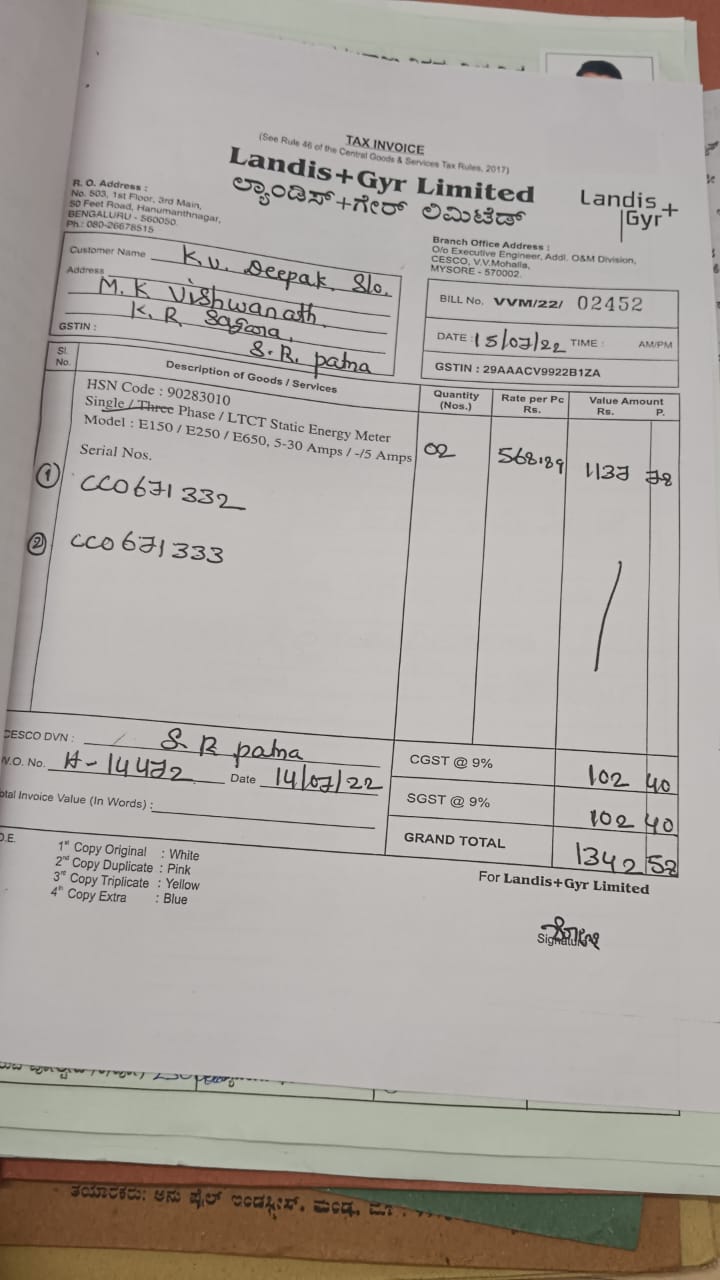 TAX INVOICE
(See Rule 46 of the Central Goods & Services Tax Rules, 2017)
Landis+Gyr Limited
ಲ್ಯಾಂಡಿಸ್+ಗೇರ್ ಲಿಮಿಟೆಡ್
Landis+
Gyr
R. O. Address :
No. 503, 1st Floor, 3rd Main,
50 Feet Road, Hanumanthnagar,
BENGALURU - 560050.
Ph.: 080-26678515
Branch Office Address :
O/o Executive Engineer, Addl. O&M Division,
CESCO, V.V.Mohalla,
MYSORE - 570002.
Customer Name K.V. Deepak S/o.
Address M.K Vishwanath.
K.R Sagara,
GSTIN : S.R. patna
BILL No. VVM/22/ 02452
DATE : 15/07/22 TIME : AM/PM
GSTIN : 29AAACV9922B1ZA
Sl. No. Description of Goods / Services Quantity (Nos.) Rate per Pc Rs. Value Amount Rs. P.
HSN Code : 90283010
Single / Three Phase / LTCT Static Energy Meter
Model : E150 / E250 / E650, 5-30 Amps / -/5 Amps 02 568.89 1137 78
Serial Nos.
① CC0671332
② CC0671333
CESCO DVN : S. R patna
W.O. No. H-14472 Date 14/07/22
Total Invoice Value (In Words) :
CGST @ 9% 102 40
SGST @ 9% 102 40
GRAND TOTAL 1342 58
1st Copy Original : White
2nd Copy Duplicate : Pink
3rd Copy Triplicate : Yellow
4th Copy Extra : Blue
For Landis+Gyr Limited
Signature
ತಯಾರಕರು: ಅನು ಫೈಲ್ ಇಂಡಸ್ಟ್ರೀಸ್, ಮಂಡ್ಯ,